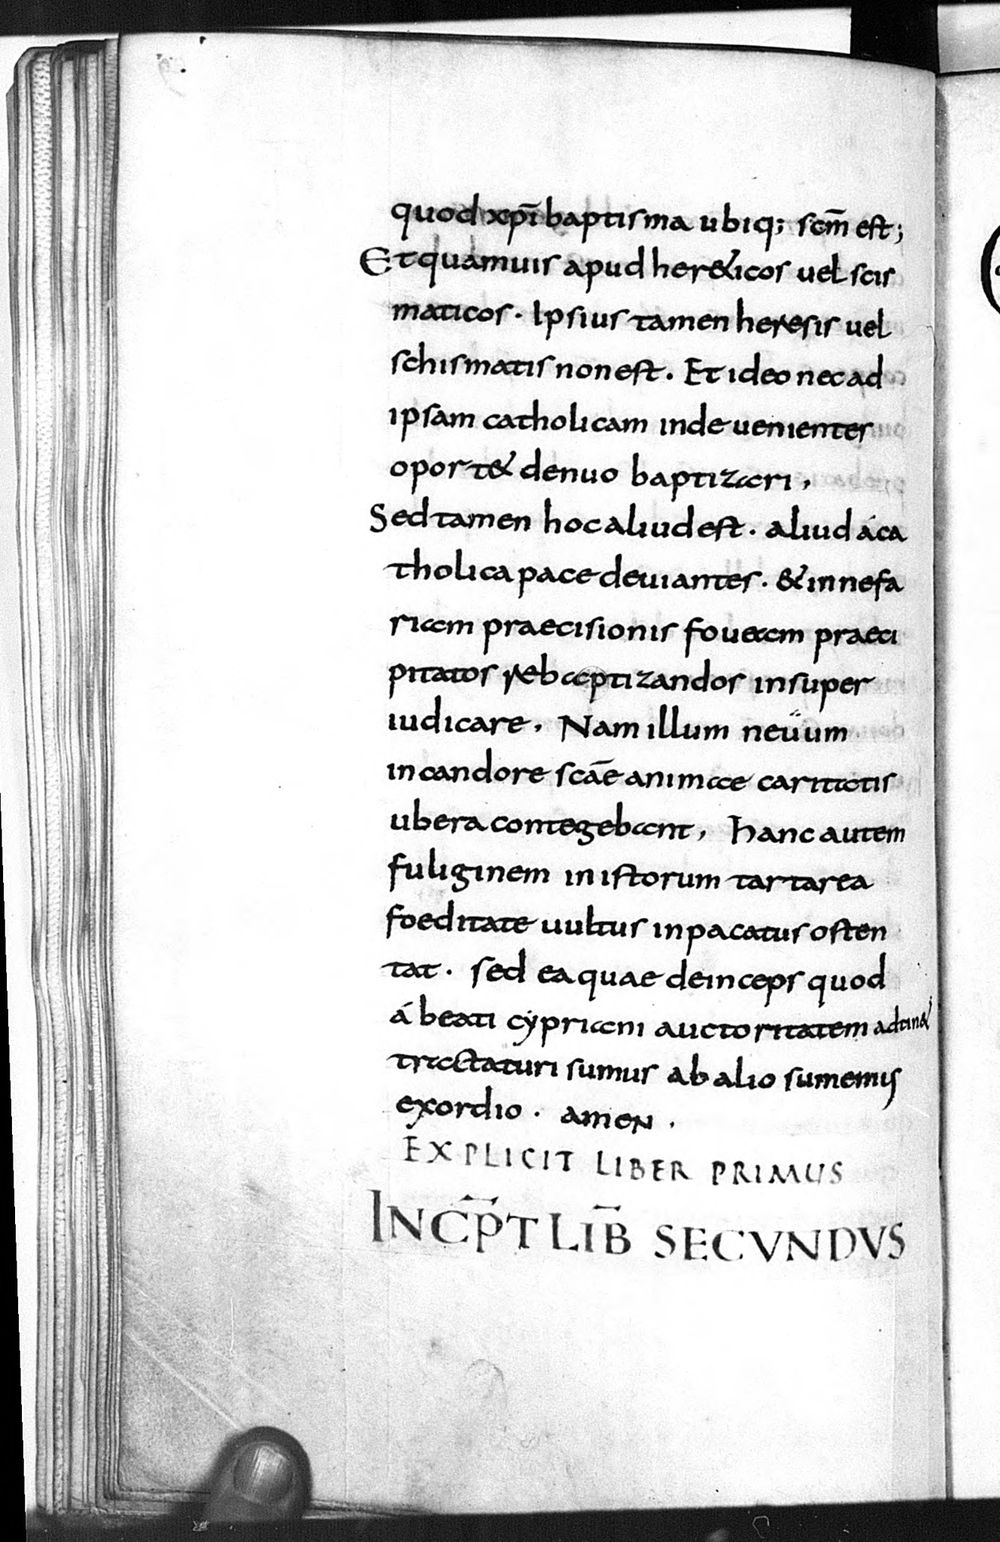 quod xp̄i baptisma ubiq; scm̄ est;
Et quamuis apud her&icos uel scis
maticos. Ipsius tamen heresis uel
schismatis non est. Et ideo nec ad
ipsam catholicam inde uenientes
oport& denuo baptizari,
Sed tamen hoc aliud est. aliud áca
tholica pace deuiantes. & in nefa
riam praecisionis foueam praeci
pitatos rebaptizandos insuper
iudicare, Nam illum neuum
in candore scāe animae caritatis
ubera contegebant, hanc autem
fuliginem in istorum tartarea
foeditate uultus inpacatus osten
tat. sed ea quae deinceps quod
á beati cypriani auctoritatem adtin&
tractaturi sumus ab alio sumemus
exordio. amen.
EXPLICIT LIBER PRIMUS
INCP̄T LIB̄ SECVNDVS